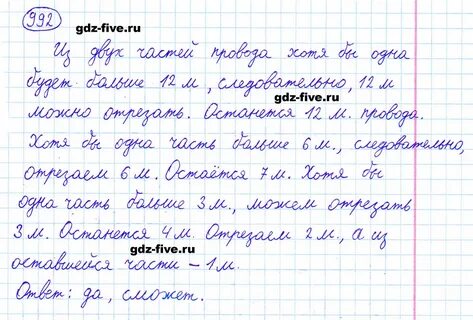 992
gdz-five.ru
Из двух частей провода хотя бы одна
будет больше 12 м, следовательно, 12 м
gdz-five.ru
можно отрезать. Останется 12 м. провода.
Хотя бы одна часть больше 6 м., следовательно,
отрезаем 6 м. Остаётся 7 м. Хотя бы
одна часть больше 3 м., можем отрезать
3 м. Останется 4 м. Отрезаем 2 м., а из
gdz-five.ru
оставшейся части – 1 м.
Ответ: да, сможет.
gdz-five.ru